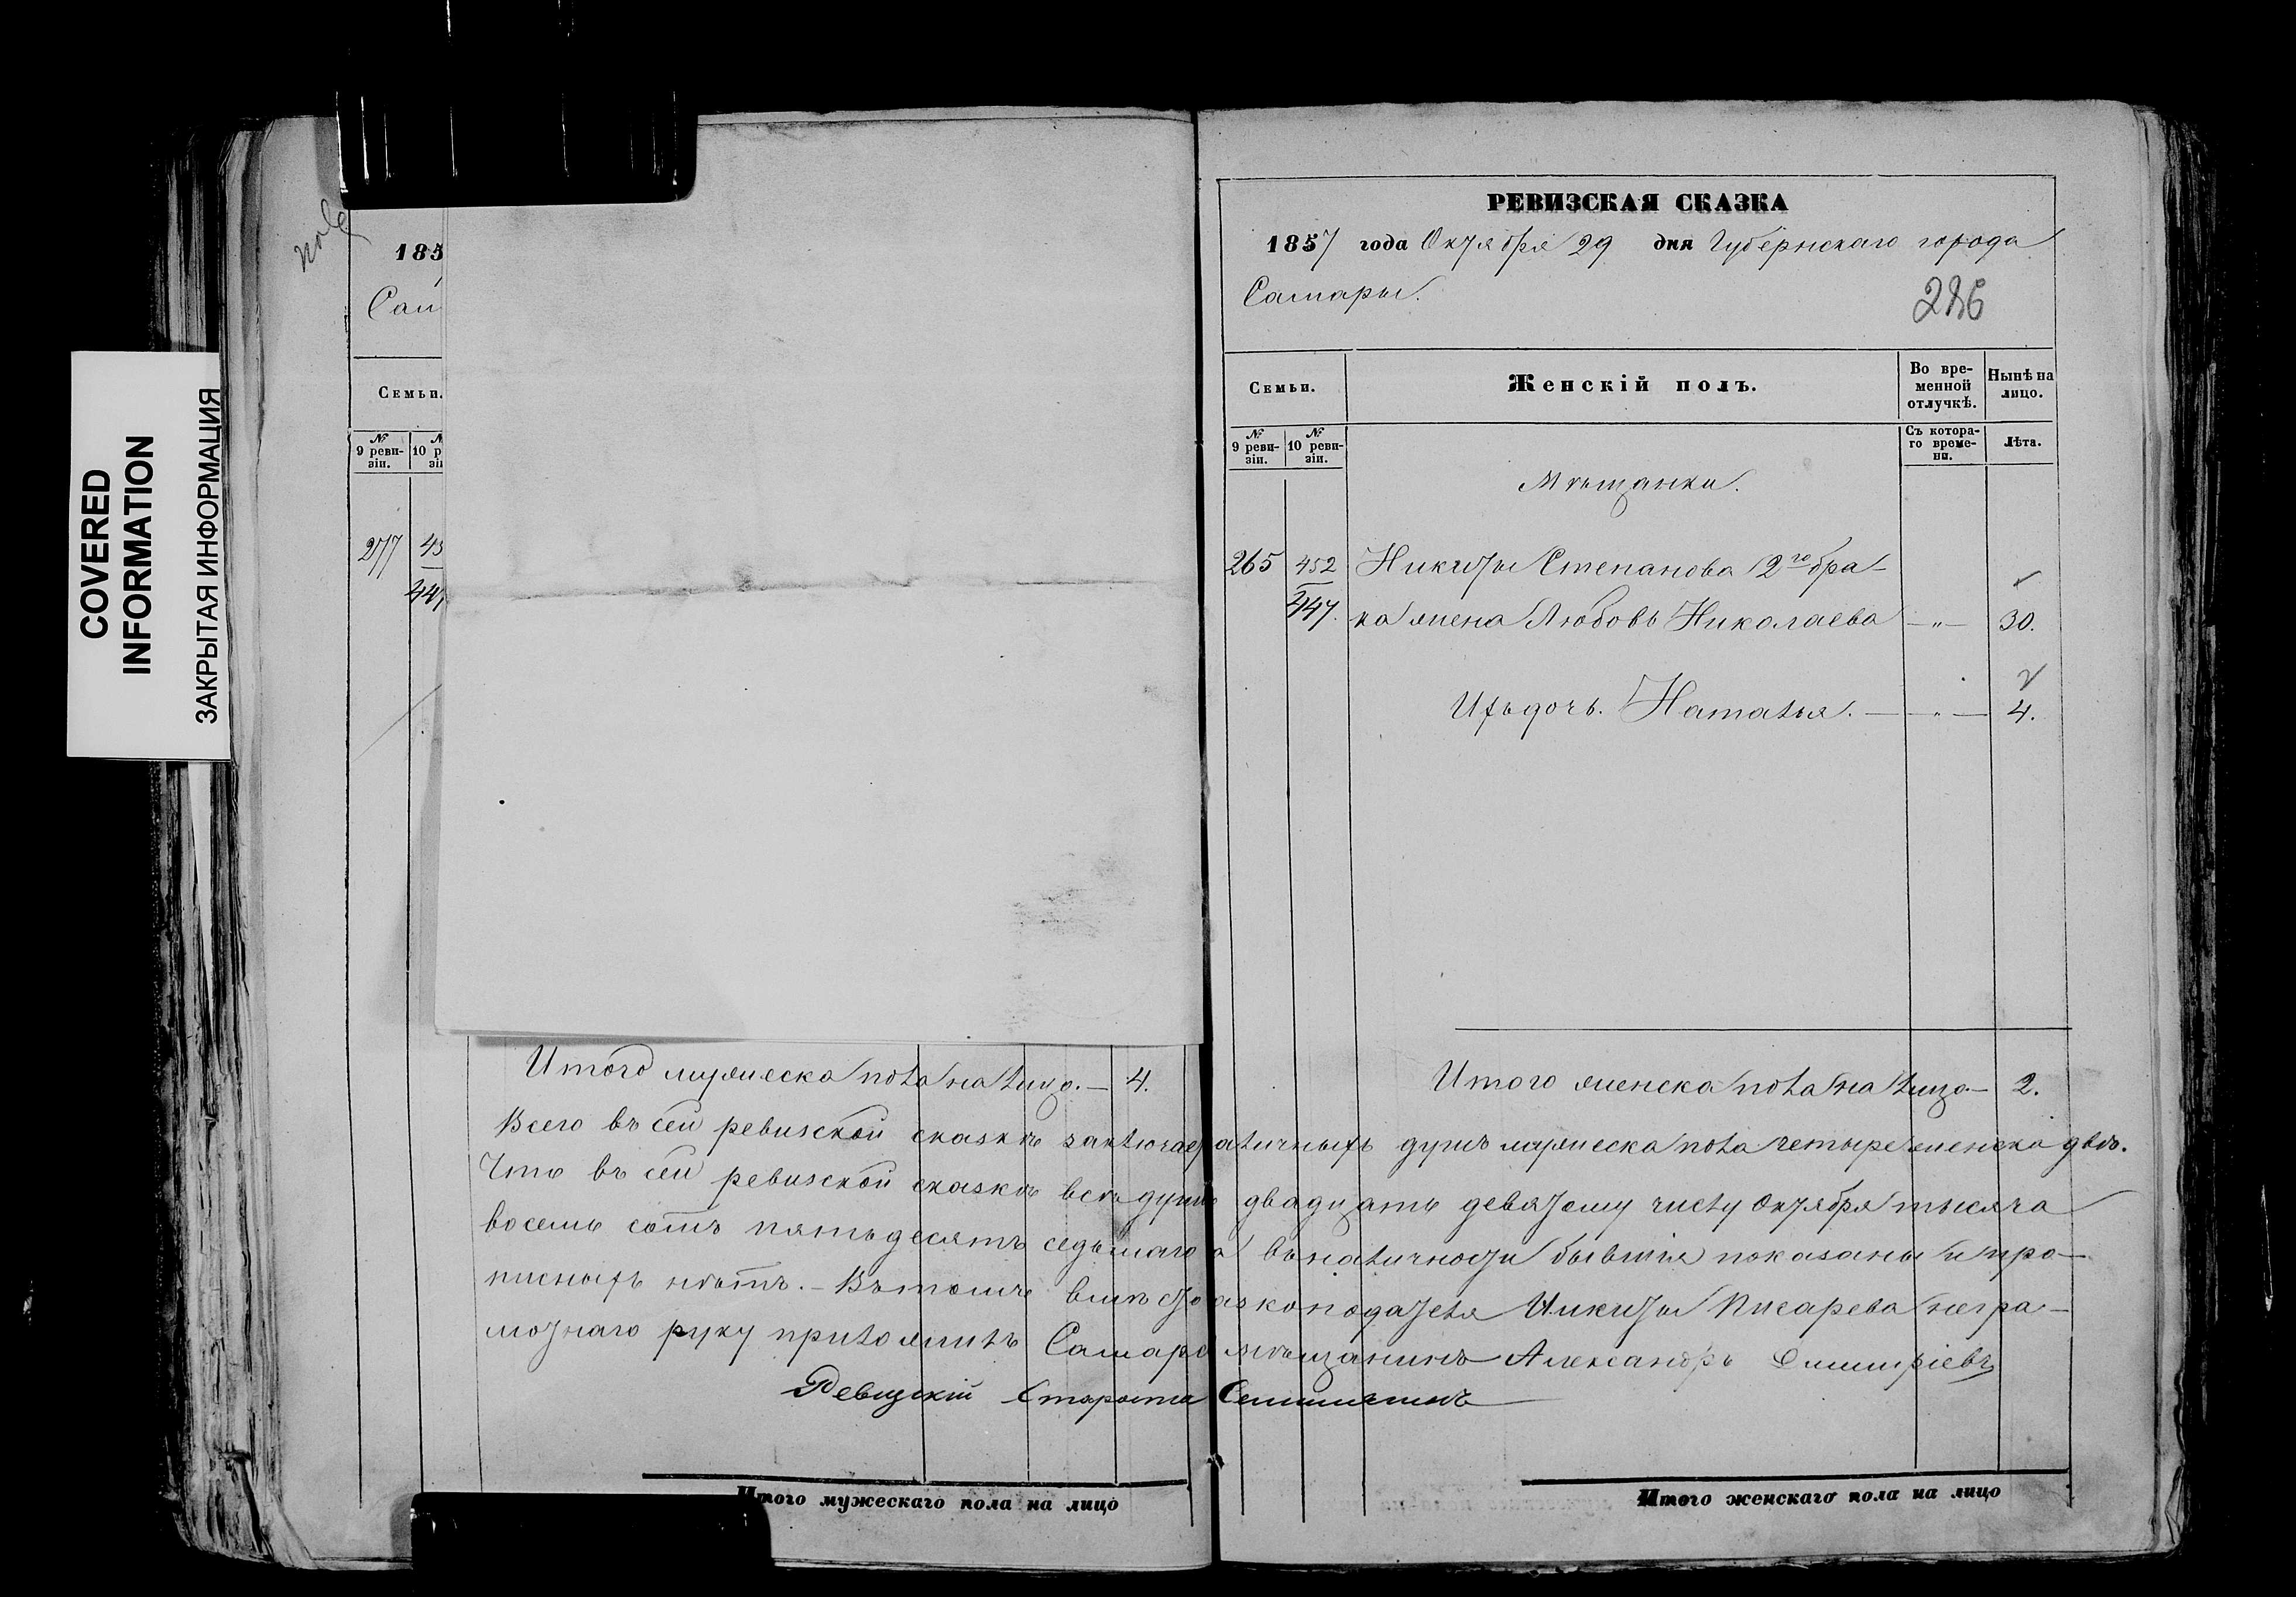 COVERED
INFORMATION
ЗАКРЫТАЯ ИНФОРМАЦИЯ
185
Сам
Семьи.
№
9 реви-
зіи.
№
10 р
зіи
277
РЕВИЗСКАЯ СКАЗКА
1857 года Октября 29 дня Губернскаго города
Самары.
286
Семьи.
Женскій полъ.
Во вре-
менной
отлучкѣ.
Нынѣ на
лицо.
№
9 реви-
зіи.
№
10 реви-
зіи.
Съ котора-
го време-
ни.
Лѣта.
Мѣщанки.
265 452 Никиты Степанова 2го бра-
447. ка жена Любовь Николаева —„— 30.
Ихъ дочь. Наталья. —„— 4.
Итого мужеска пола на лицо. — 4.
Итого женска пола на лицо — 2.
Всего въ сей ревизской сказкѣ заключает наличныхъ душъ мужеска пола четыре женска двѣ.
Что въ сей ревизской сказкѣ всѣ души двадцать девятому числу Октября тысяча
восемь сотъ пятьдесятъ седьмаго въ наличности бывшія показаны и про-
писныхъ нѣтъ. – Въ томъ вмѣсто Никиты Писарева негра-
мотнаго руку приложилъ Самарс мѣщанинъ Александръ Дмитріевъ
Ревизскій Староста
Итого мужескаго пола на лицо
Итого женскаго пола на лицо